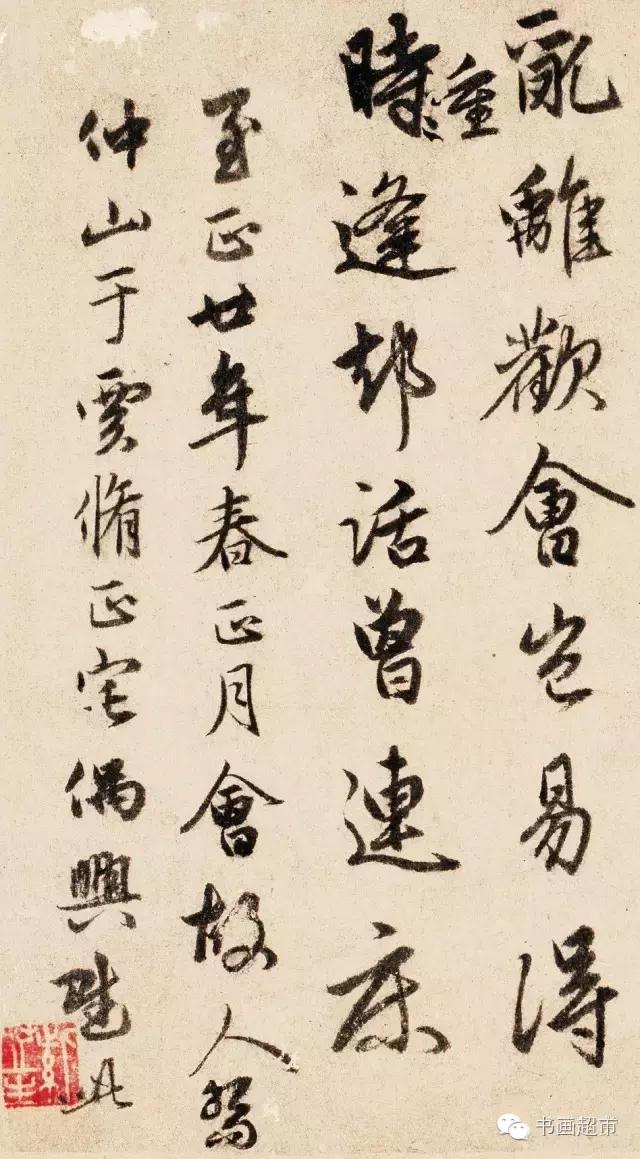 亂離歡會豈易得
時重逢却話曾連床
至正廿年春正月會故人
仲山于賈脩正宅偶興此
书画超市